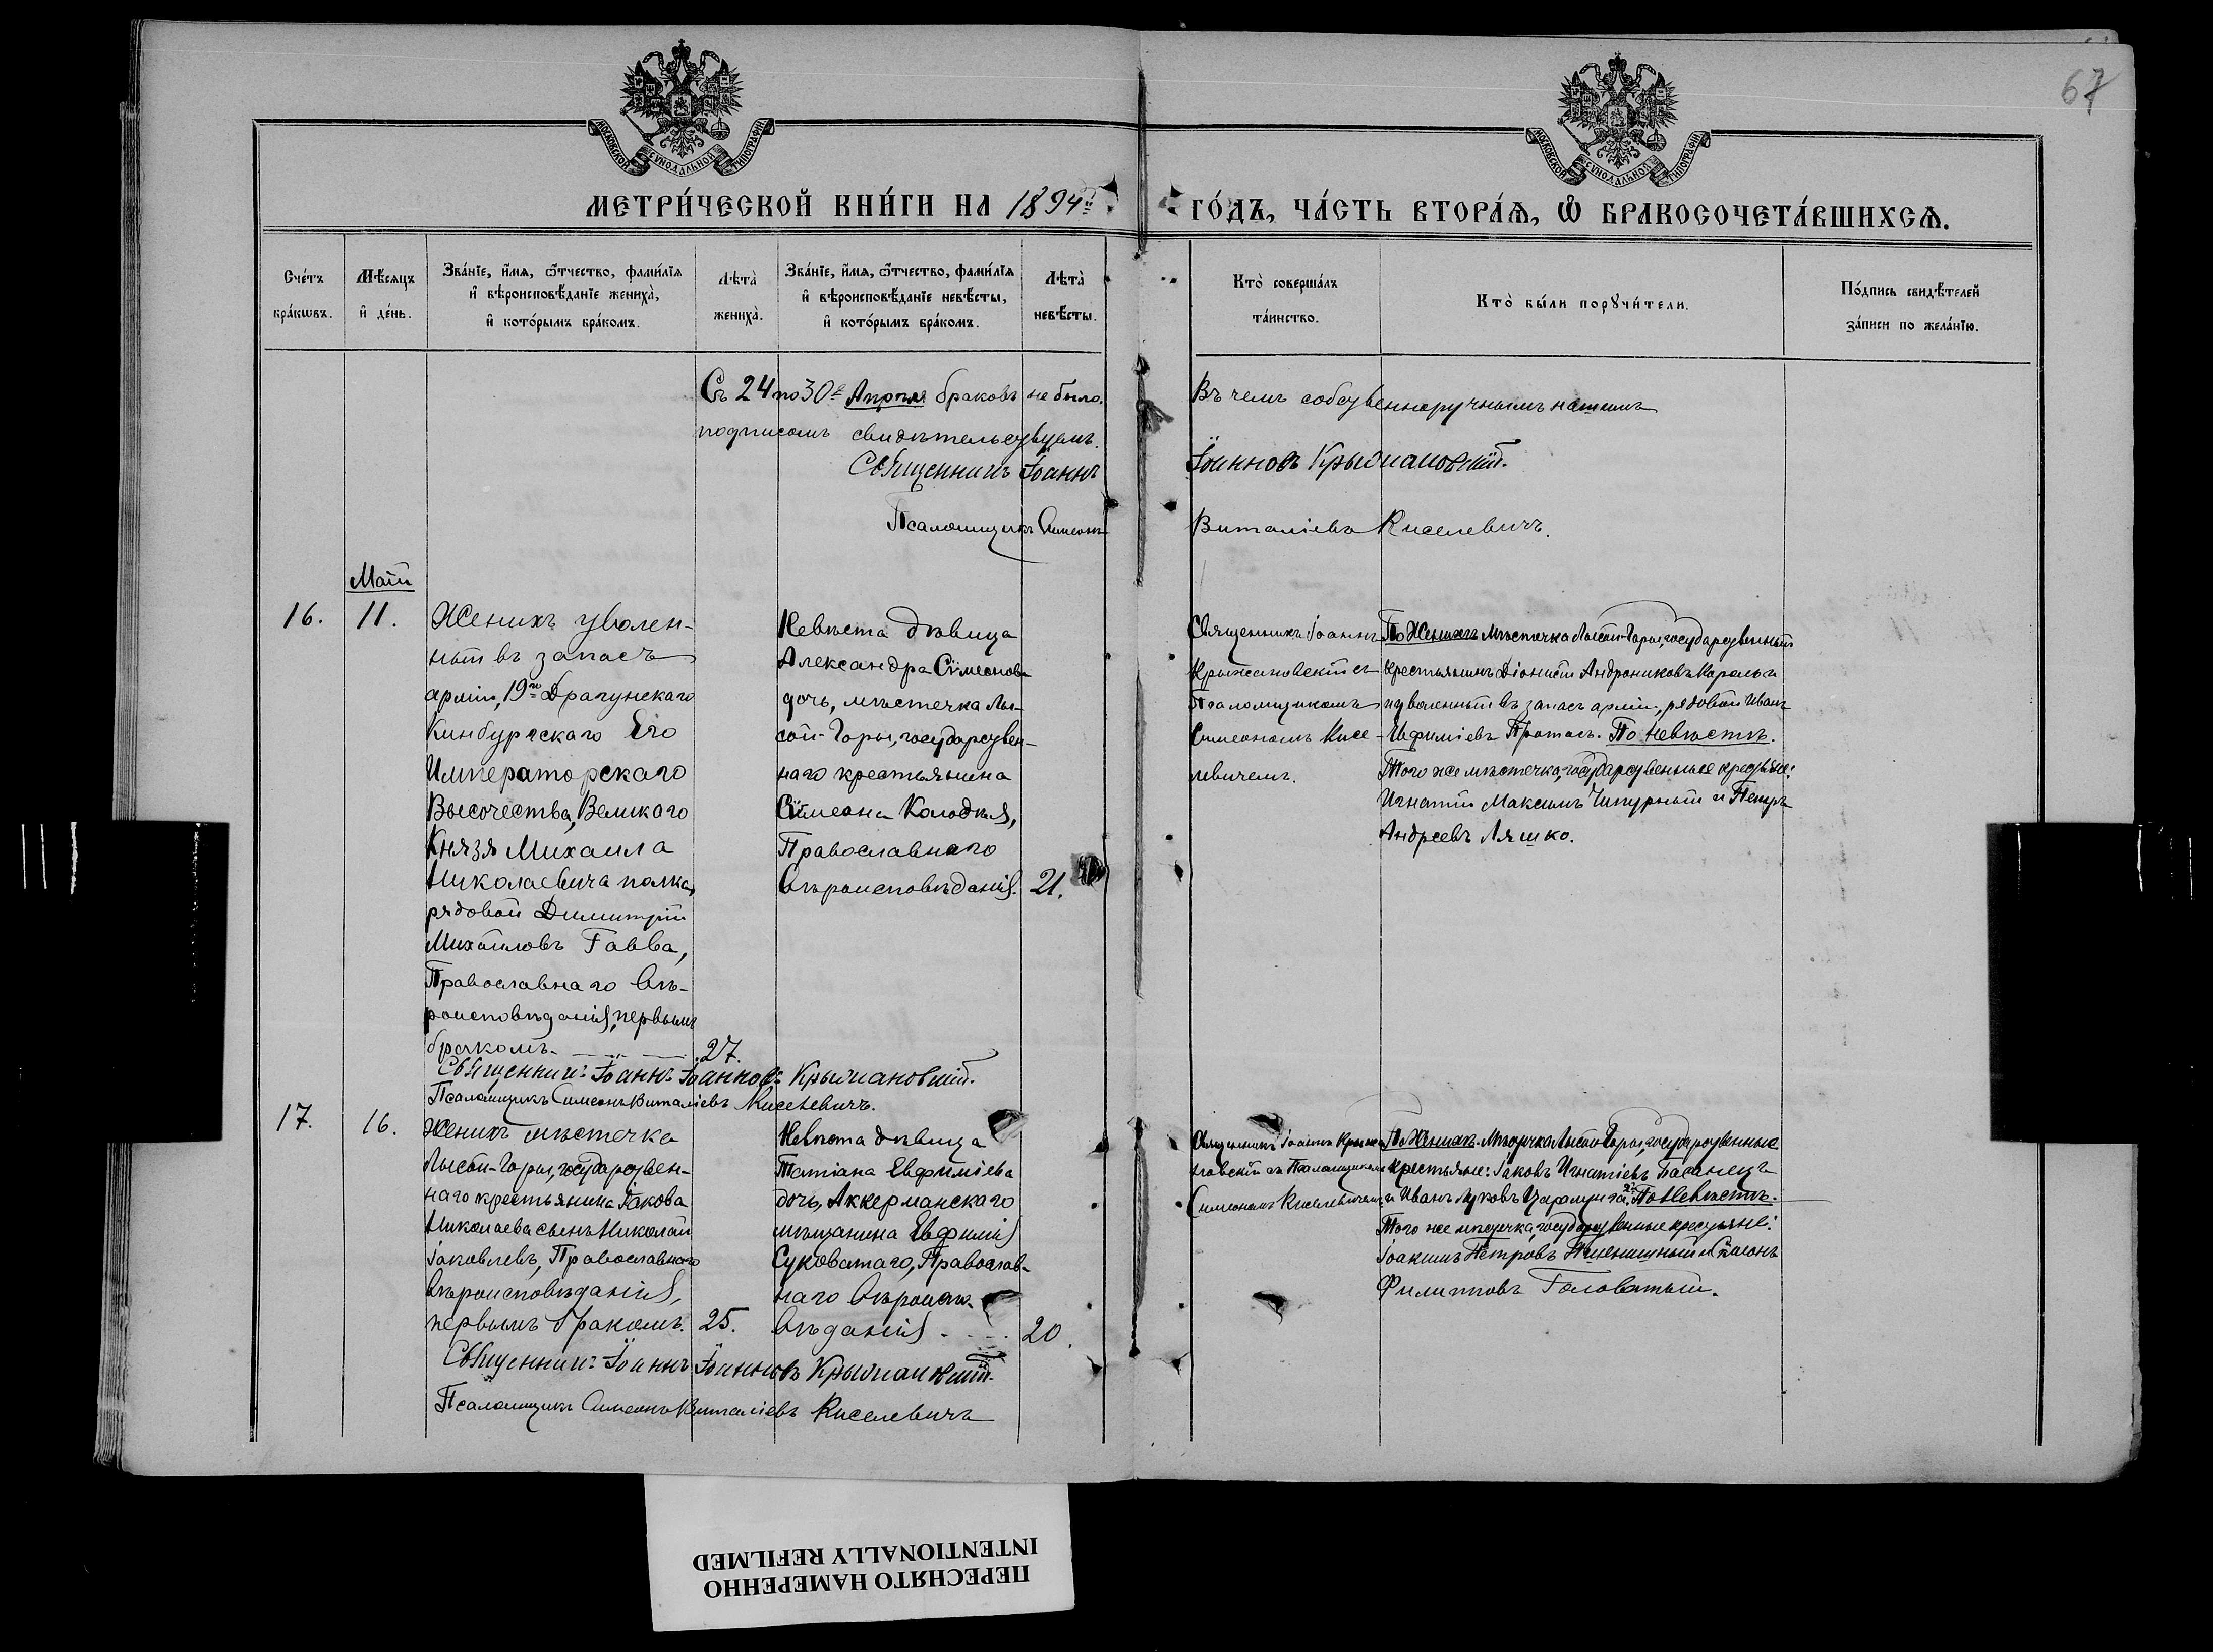 67
МОСКОВСКОЙ СѴНОДАЛЬНОЙ ТИПОГРАФІИ
МОСКОВСКОЙ СѴНОДАЛЬНОЙ ТИПОГРАФІИ
МЕТРИ́ЧЕСКОЙ КНИ́ГИ НА 1894й ГО́ДЪ, ЧА́СТЬ ВТОРА́Ѧ, Ѡ҆ БРАКОСОЧЕТА́ВШИХСѦ.
Сче́тъ
бра́кѡвъ.
Мѣ́сяцъ
и҆ де́нь.
Зва́нїе, и҆́мя, ѻ҆́тчество, фами́лїя
и҆ вѣроисповѣ́данїе жениха̀,
и҆ кото́рымъ бра́комъ.
Лѣта̀
жениха̀.
Зва́нїе, и҆́мя, ѻ҆́тчество, фами́лїя
и҆ вѣроисповѣ́данїе невѣ́сты,
и҆ кото́рымъ бра́комъ.
Лѣта̀
невѣ́сты.
Кто̀ соверша́лъ
та́инство.
Кто̀ бы́ли порꙋчи́тели.
По́дпись свидѣ́телей
за́писи по жела́нїю.
Съ 24 по 30е Апрѣля браковъ не было. Въ чемъ собственноручнымъ нашимъ
подписомъ свидѣтельствуемъ.
Священникъ Іоаннъ Іоанновъ Крыжановскій.
Псаломщикъ Симеонъ Виталіевъ Киселевичъ.
Май
16.
11.
Женихъ уволен-
ный въ запасъ
арміи, 19го Драгунскаго
Кинбурнскаго Его
Императорскаго
Высочества, Великаго
Князя Михаила
Николаевича полка,
рядовой Димитрій
Михайловъ Гавва,
Православнаго Вѣ-
роисповѣданія, первымъ
бракомъ.
27.
Невѣста дѣвица
Александра Сѵмеонова
дочь, мѣстечка Лы-
сой-Горы, государствен-
наго крестьянина
Сѵмеона Колодія,
Православнаго
Вѣроисповѣданія.
21.
Священникъ Іоаннъ
Крыжановскій съ
Псаломщикомъ
Симеономъ Кисе-
левичемъ.
По Женихѣ мѣстечка Лысой-Горы, государственный
крестьянинъ Діонисій Андрониковъ Король и
уволенный въ запасъ арміи, рядовой Иванъ
Ефиміевъ Протасъ. По Невѣстѣ.
Того же мѣстечка, государственные крестьяне:
Игнатій Максимъ Чипурный и Петръ
Андреевъ Ляшко.
Священникъ Іоаннъ Іоанновъ Крыжановскій.
Псаломщикъ Симеонъ Виталіевъ Киселевичъ.
17.
16.
Женихъ мѣстечка
Лысой-Горы, государствен-
наго крестьянина Іакова
Николаева сынъ Николай
Іаковлевъ, Православнаго
Вѣроисповѣданія,
первымъ бракомъ.
25.
Невѣста дѣвица
Татіана Евфиміева
дочь, Аккерманскаго
мѣщанина Евфимія
Суковатаго, Православ-
наго Вѣроиспо-
вѣданія
20.
Священникъ Іоаннъ Крыжа-
новскій съ Псаломщикомъ
Симеономъ Киселевичемъ.
По Женихѣ. Мѣстечка Лысой Горы, государственные
крестьяне: Іаковъ Игнатіевъ Басанецъ
и Иванъ Луковъ По Невѣстѣ.
Того же мѣстечка, государственные крестьяне:
Іоакимъ Петровъ Пшенишный и Сѵмеонъ
Филипповъ Головатый.
Священникъ Іоаннъ Іоанновъ Крыжановскій.
Псаломщикъ Симеонъ Виталіевъ Киселевичъ
ПЕРЕСНЯТО НАМЕРЕННО
INTENTIONALLY REFILMED